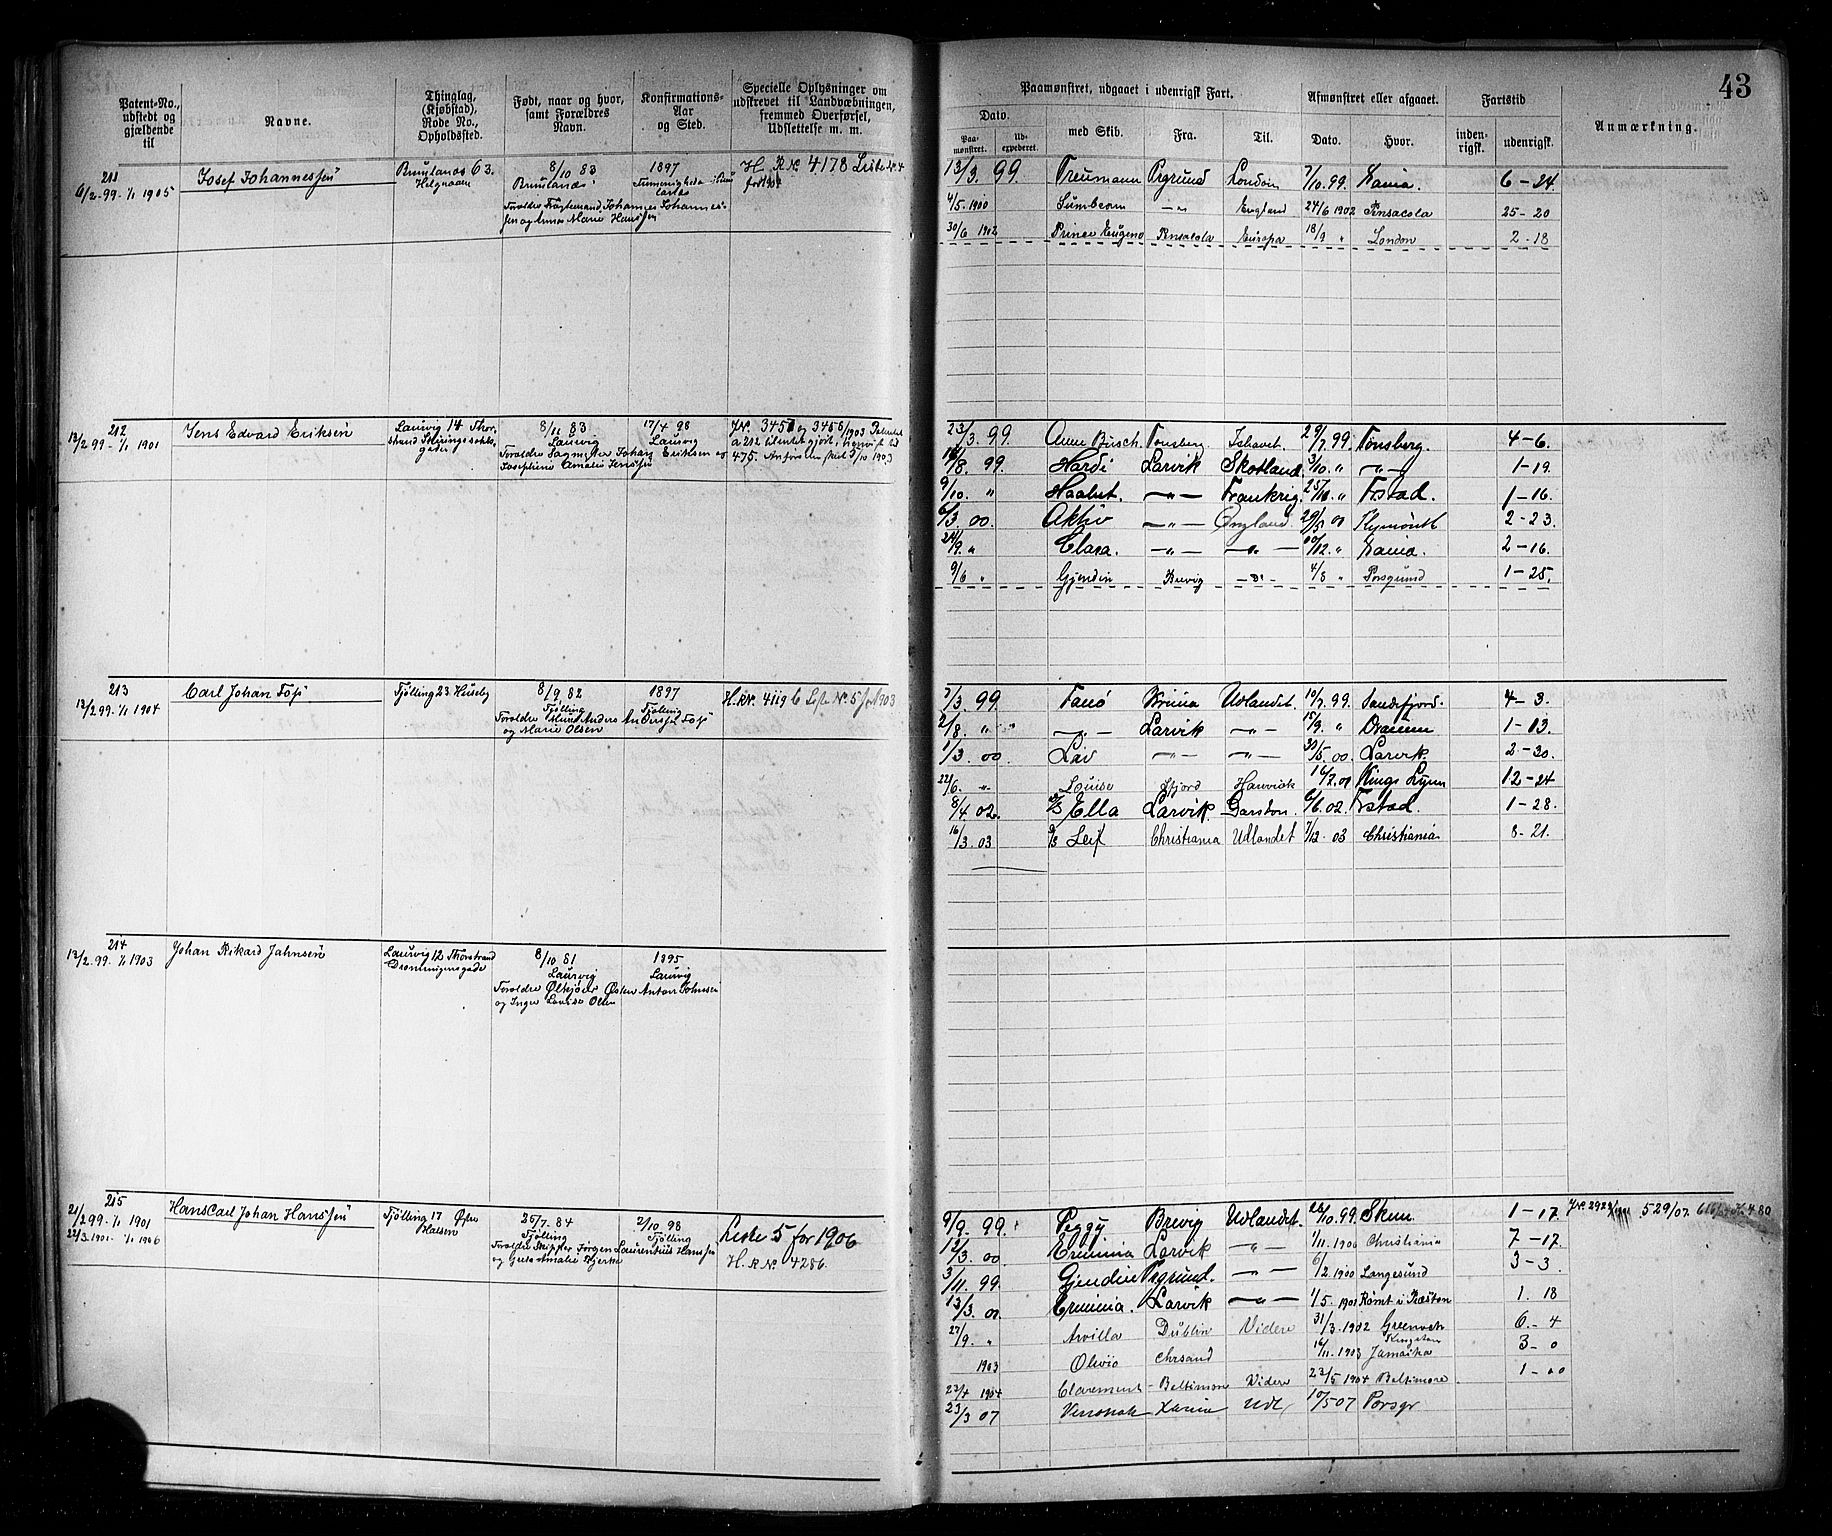 43
Patent-No., udstedt og gjældende til
Navne.
Thinglag, (Kjøbstad), Rode No., Opholdssted.
Født, naar og hvor, samt Forældres Navn.
Konfirmations-Aar og Sted.
Specielle Oplysninger om udskrevet til Landværbningen, fremmed Overførsel, Udslettelse m. m.
Paamønstret, udgaaet i udenrigsk Fart.
Afmønstret eller afgaaet.
Fartstid
Anmærkning.
Dato.
Paa-mønstret.
Ud-expederet.
med Skib.
Fra.
Til.
Dato.
Hvor.
inden-rigsk.
udenrigsk.
211
6/2 99 - 1/1 1905
Josef Johannessen
Brunlanæs 63.
8/10 83
Brunlanæs
1897
H. R No 4178 Liste No 4
for 1904
13/3 99. Treumann Prgrund London 7/10 99. Xania. 6 - 24
4/5 1900 Sumbeam -"- England 24/6 1902 Pensacola 25 - 20
30/6 1902 Prince Eugene Pensacola Europa 18/9 " London 2 - 18
212
13/2 99 - 1/1 1901
Jens Edvard Eriksen
Laurvig 14 Thor-
strand
8/11 83
Laurvig
Forældre Sagmester Johan Eriksen og
Josephine Amalie Jenssen
17/4 98
Laurvig
23/3 99. Anne Busch. Tønsberg. Ishavet. 29/7 99. Tønsberg. 4 - 6.
/8 99 Hardi Larvik Skotland. 3/10 " -"- 1 - 19.
9/10 " Haabet. -"- Frankrig. 25/10 " Frstad. 1 - 16.
6/3 00. Aktiv -"- England 29/5 00 Plymouth 2 - 23.
24/9 " Clara. -"- -"- 10/12 " Xania. 2 - 16.
9/6 " Gjendin Brevig -"- 4/8 " Porsgrund 1 - 25.
213
13/2 99 - 1/1 1904
Carl Johan
Tjølling 23 Huseby
8/9 82
Tjølling
og Marie Olsen
1897
Tjølling
H. R No. 4119 6 Liste No. 5 for 1903
7/3 99. Fanø Udlandet. 10/7 99. Sandefjord. 4 - 3.
2/8 " -"- Larvik -"- 15/9 " Drammen 1 - 13.
1/3 00. Løv -"- -"- 30/5 00. Larvik. 2 - 30.
22/6 " Louise Sfjord 16/7 01 Kings Lynn 12 - 24
8/4 02. Ella Larvik Garston. 6/6 02. Frstad. 1 - 28.
16/3 03 Leif Christiania Udlandet 7/12 03 Christiania 8 - 21.
214
13/2 99. 1/1 1903
Johan Rikard Jahnsen
Laurvig 12 Thorstrand
Dronningensgade
8/10 81
Laurvig
og Inger Lovise Olsen
1895
Laurvig
215
21/2 99 - 1/1 1901
22/3 1901 - 1/1 1906
Hans Carl Johan Hanssen
Tjølling 17 Østre
Halsen
25/7 84
Tjølling
Forældre Skipper Jørgen Laurentius Hanssen
2/10 98
Tjølling
Liste 5 for 1906
H. R No. 4286.
9/9 99. Peggy Brevig Udlandet. 22/10 99. Skien. 1 - 17.
529/07.
12/3 00 Erminia Larvik -"- 1/11 1900 Christiania 7 - 17.
3/11 99. Gjendine Prgrund. -"- 6/2 1900 Langesund 3 - 3.
13/3 00 Erminia. Larvik -"- 1/5 1901 Rømt i 1. 18
27/9 " Arvilla Dublin Videre 31/3 1902 Greenock 6. - 4
1903 Olivia Chrsand 16/11 1903 Kingston Jamaika 3 - 0
23/4 1904 Claremont Beltimore Videre 23/5 1904 Beltimore 1 - 00
23/3 07 Xania Udl. 10/5 07 Porsgr